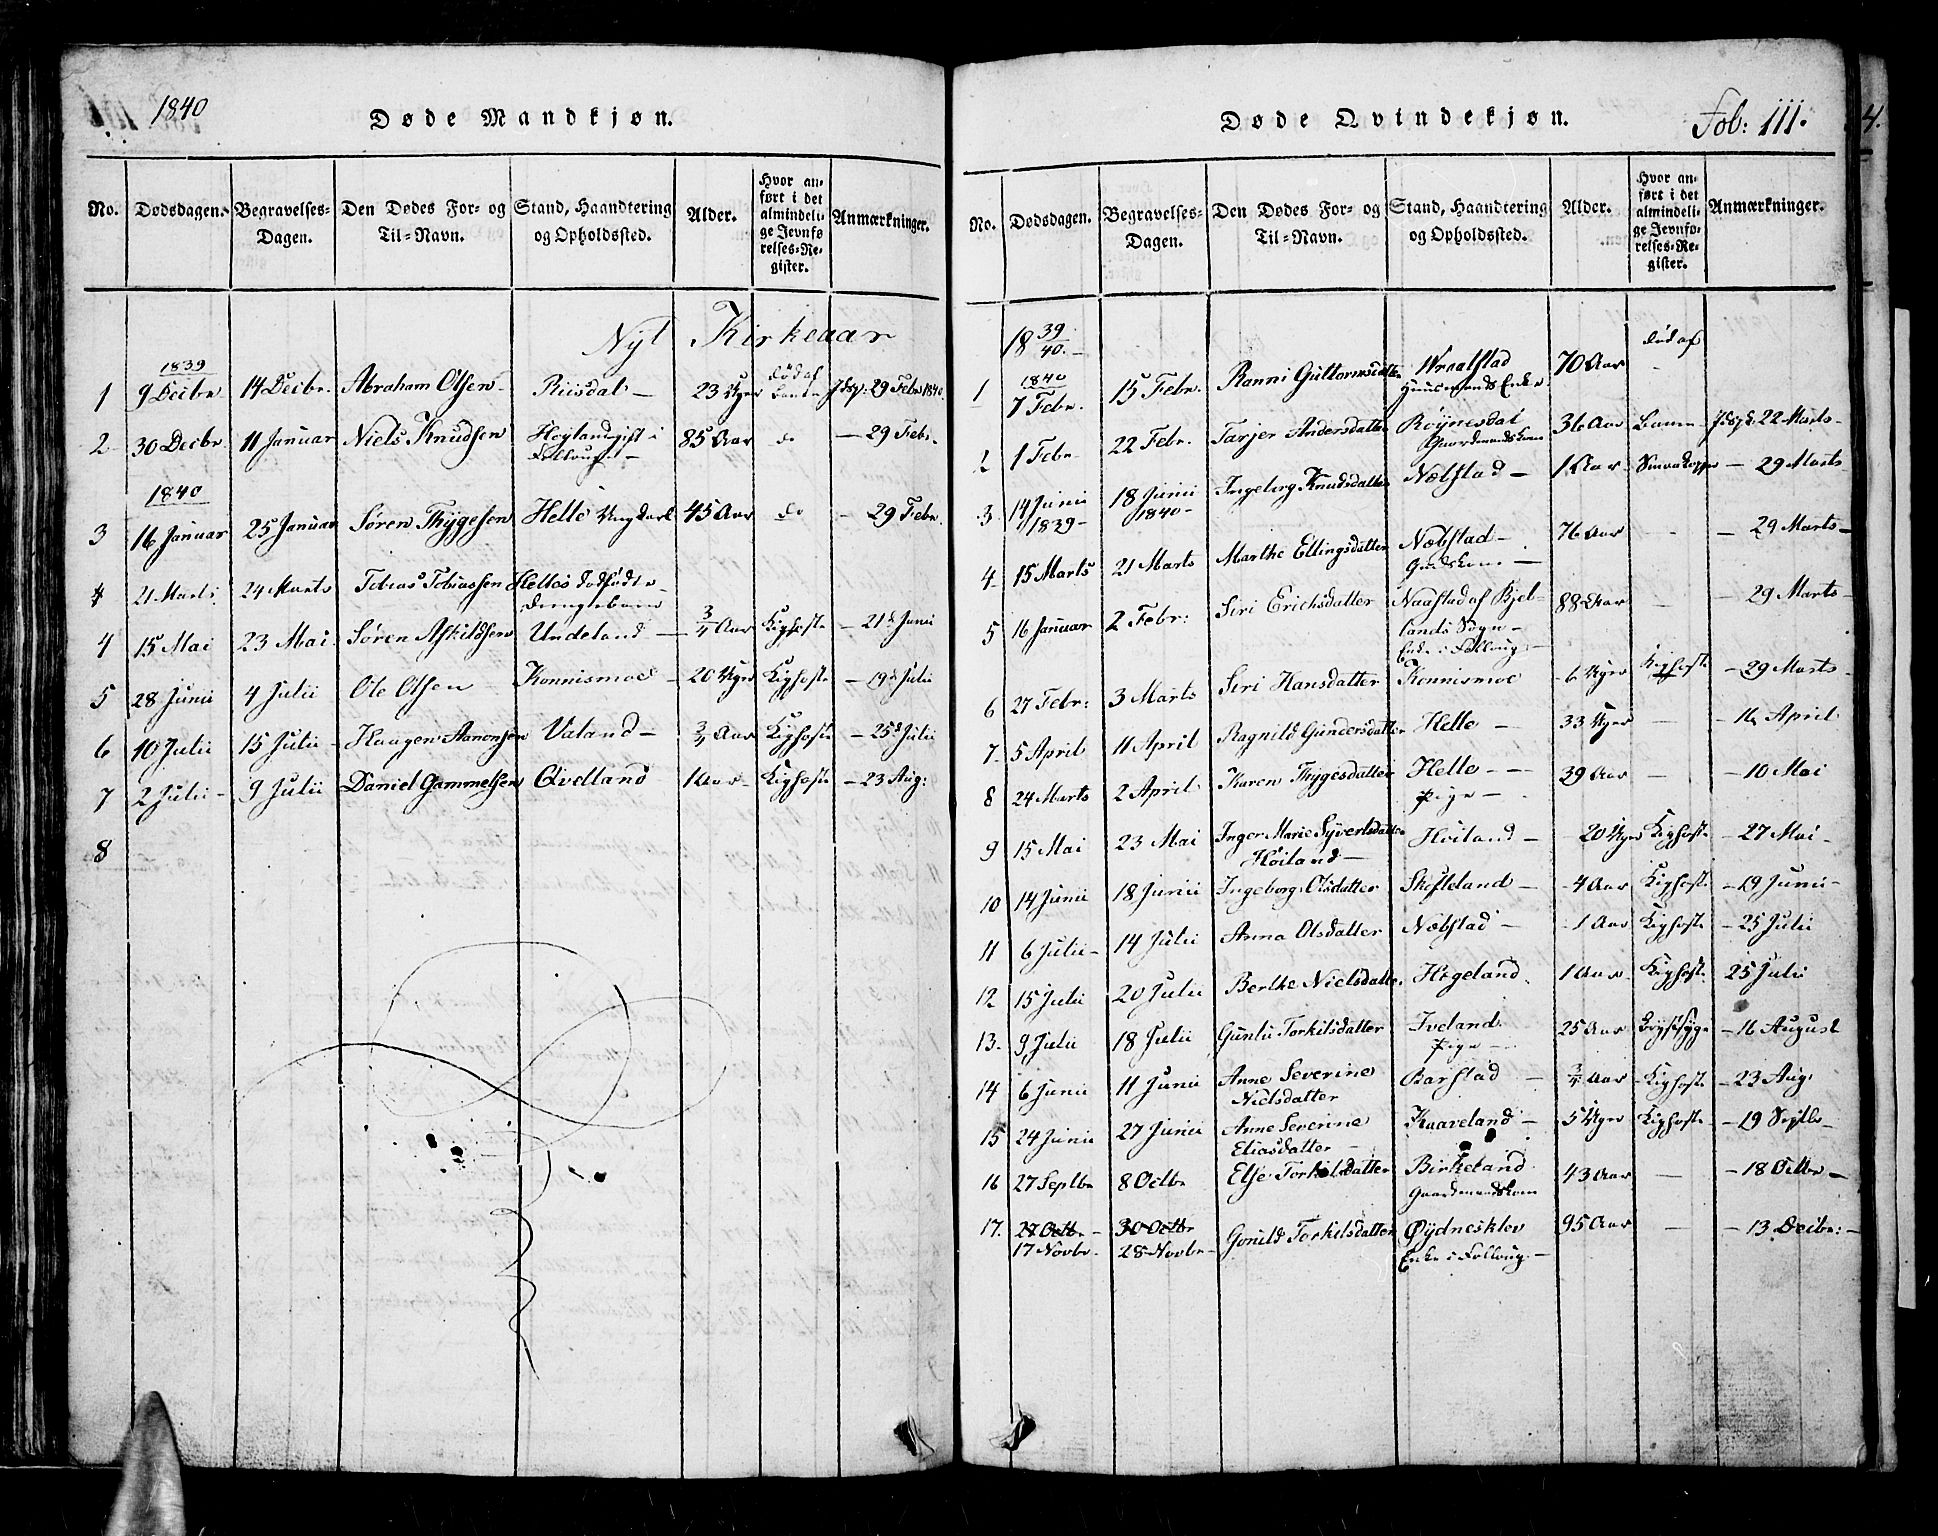 1840
Døde Mandkjøn.
No. Dødsdagen. Begravelses-Dagen. Den Dødes For- og Til-Navn. Stand, Haandtering og Opholdssted. Alder. Hvor anført i det almindelige Jevnførelses-Register. Anmærkninger.
Nyt Kirkeaar
1839
1 9 Decbr 14 Decbr. Abraham Olsen Riisdal 23 Uger død af 29 Febr 1840
2 30 Decbr. 11 Januar Niels Knudsen Høyland 85 Aar do 29 Febr.
1840
3 16 Januar 25 Januar Søren Thygesen Helle 45 Aar do 29 Febr.
4 21 Marts 24 Marts Tobias Tobiassen Helles dødfødte Drengebarn
4 15 Mai 23 Mai Søren Askildsen Undeland 3/4 Aar Kighoste 21 Junii
5 28 Junii 4 Julii Ole Olsen Konnismoe 20 Uger Kighoste 19 Julii
6 10 Julii 15 Julii Haagen Aanonsen Valand 3/4 Aar Kighoste 25 Julii
7 2 Julii 9 Julii Daniel Gammelsen Qvelland 1 Aar Kighoste 23 Aug:
8
Døde Qvindekjøn.
Fol: 111.
No. Dødsdagen. Begravelses-Dagen. Den Dødes For- og Til-Navn. Stand, Haandtering og Opholdssted. Alder. Hvor anført i det almindelige Jevnførelses-Register. Anmærkninger.
18 39/40.
død af
1840
1 7 Febr. 15 Febr. Ranni Guttormsdatter Wraalstad Huusmands Enke 70 Aar
2 1 Febr. 22 Febr. Tarjer Andersdatter Røynesdal Gaardmandskone 36 Aar 22 Marts
3 14 Junii 1839 18 Junii 1840 Ingeborg Knudsdatter Næbstad 1 Aar 29 Marts
4 15 Marts 21 Marts Marthe Ellingsdatter Næbstad 76 Aar 29 Marts
5 16 Januar 2 Febr: Siri Erichsdatter Naastad af Bjellands Sogn Enke i Folloug 88 Aar 29 Marts
6 27 Febr: 3 Marts Siri Hansdatter Konnismoe 6 Uger Kighoste 29 Marts
7 5 April 11 April Ragnild Gundersdatter Helle 33 Uger 16 April
8 24 Marts 2 April Karen Thygesdatter Helle Pige 39 Aar 10 Mai
9 15 Mai 23 Mai Inger Marie Syvertsdatter Høiland Høiland 20 Uger Kighoste 27 Mai
10 14 Junii 18 Junii Ingeborg Olsdatter Skofteland 4 Aar Kighoste 19 Junii
11 6 Julii 14 Julii Anna Olsdatter Næbstad 1 Aar Kighoste 25 Julii
12 15 Julii 20 Julii Berthe Nielsdatter Høgeland 1 Aar Kighoste 25 Julii
13. 9 Julii 18 Julii Gunlu Torkilsdatter Iveland Pige 25 Aar Brystsyge 16 August
14 6 Junii 11 Junii Anne Severine Nielsdatter Barstad 3/4 Aar Kighoste 23 Aug:
15 24 Junii 27 Junii Anne Severine Eliasdatter Kaaveland 5 Uger Kighoste 19 Septbr
16 27 Septbr 8 Octbr Else Torkilsdatter Birkeland Gaardmandskone 43 Aar 18 Octbr
17. 27 Octbr 30 Octbr
17 Novbr. 28 Novbr Gonild Torkilsdatter Øydnesklev Enke i Folloug 95 Aar 13 Decbr: